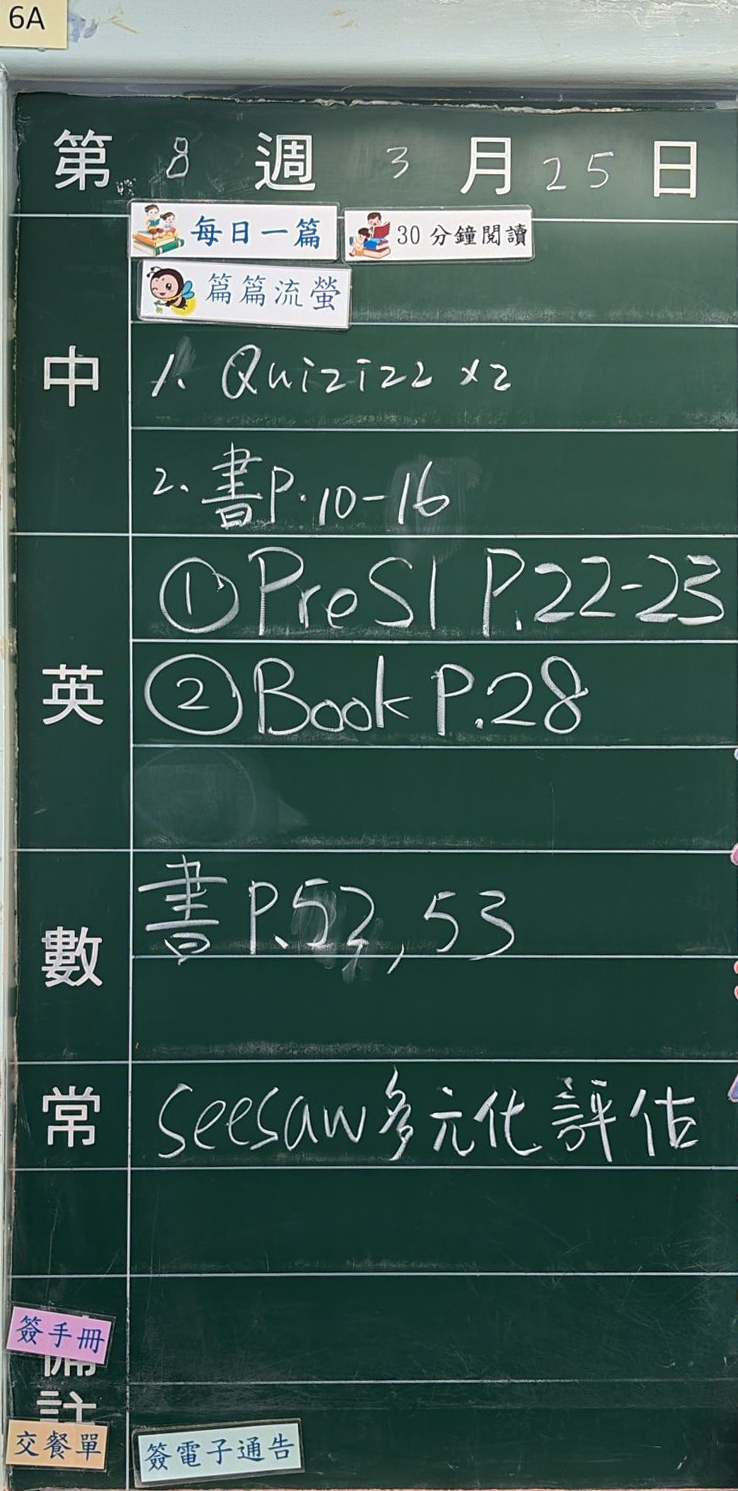 6A
第 8 週 3 月 25 日
每日一篇 30 分鐘閱讀
篇篇流螢
中
1. Quizizz x2
2. 書P.10-16
英
① PreS1 P.22-23
② Book P.28
數
書 P.52, 53
常
Seesaw多元化評估
簽手冊
備註
交餐單 簽電子通告